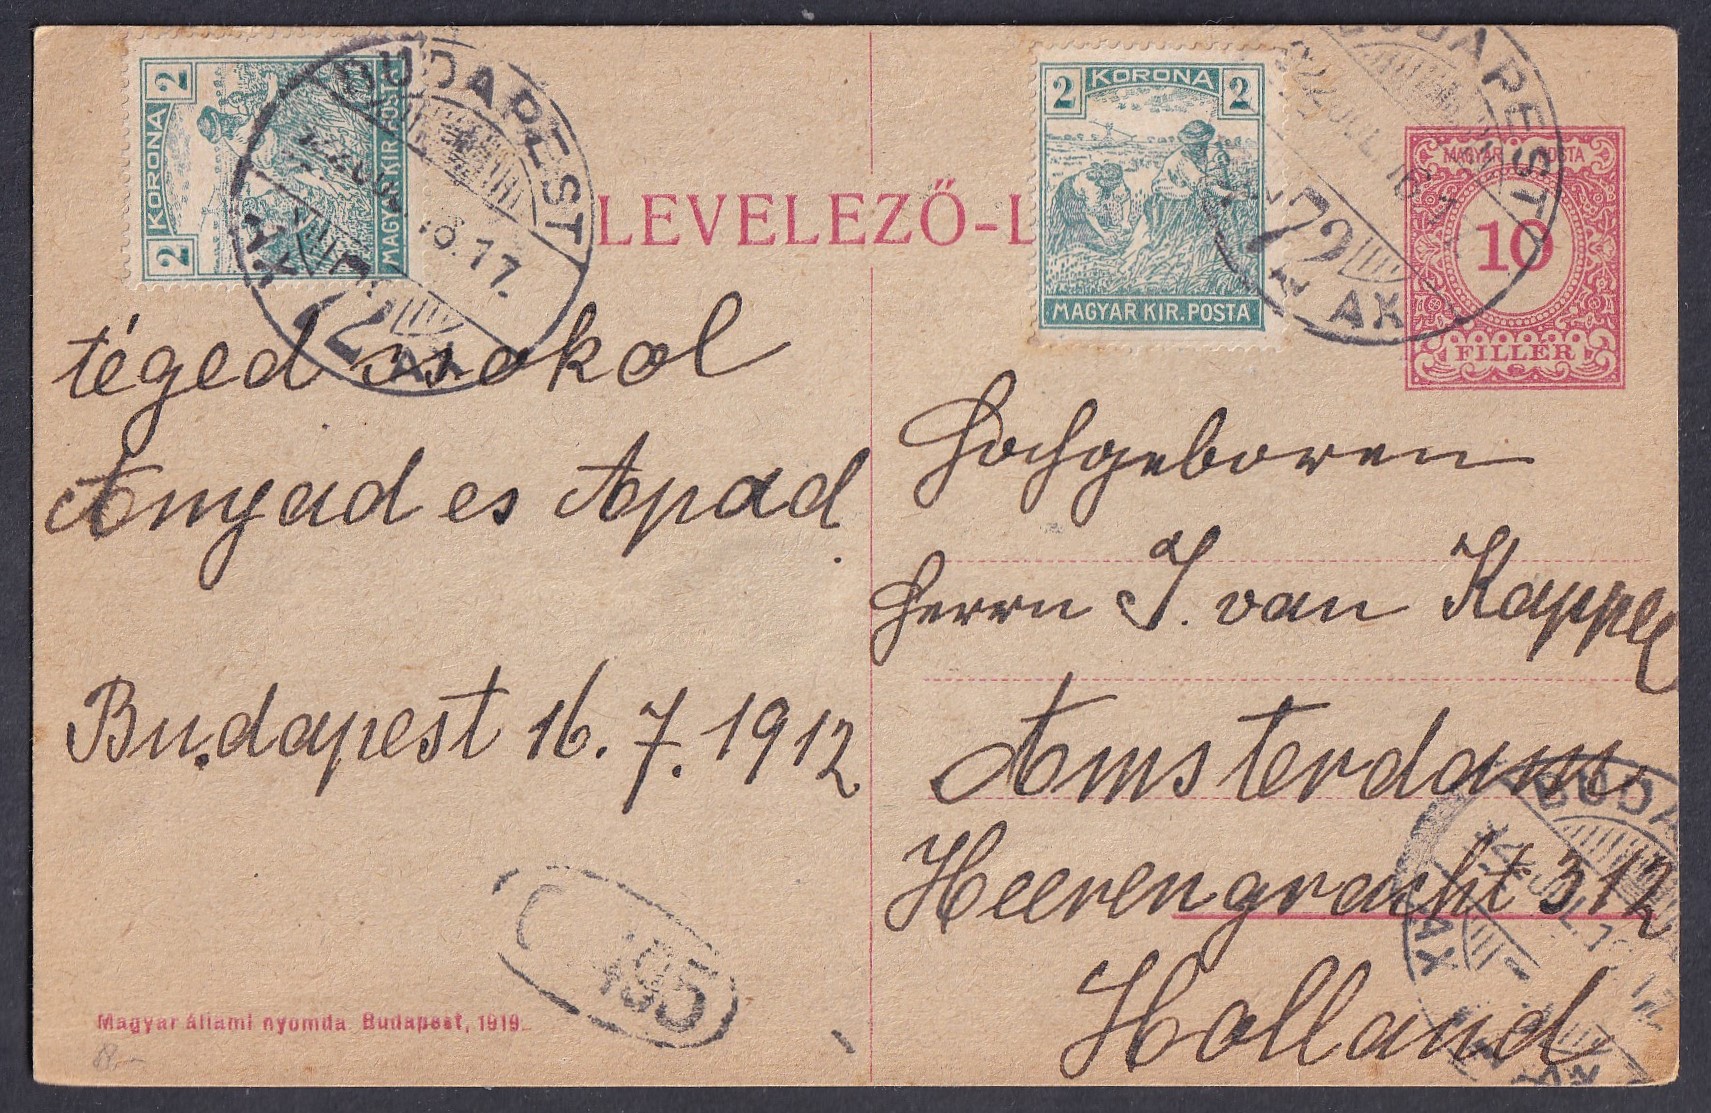 2 KORONA 2
MAGYAR KIR. POST
BUDAPEST
72
AX
LEVELEZŐ-L
2 KORONA 2
MAGYAR KIR. POSTA
BUDAPEST
922 JUL. 16
72
AX
MAGYAR POSTA
10
FILLÉR
téged csokol
Anyad es Apad
Budapest 16. 7. 1912
Hochgeboren
Herrn J. van Kappel
Amsterdam
Heerengracht 312
Holland
BUDA
AX
195
Magyar állami nyomda. Budapest, 1919.